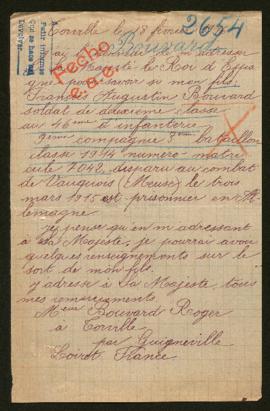 2654
Bouvard
Fecho
Sa Majesté le Roi d'Espa
gne pour savoir si mon fils
Francois Augustin Bouvard
soldat de deuxième classe
au 46ème d'infanterie
compagnie bataillon
classe 1914 numero matri
cule 7042 disparu au combat
de Vauquois (Meuse) le trois
mars 1915 est prisonnier en Al
lemagne
je pense qu'en m'adressant
à Sa Majesté, je pourrai avoir
quelques renseignements sur le
sort de mon fils.
J'adresse à Sa Majesté tous
mes remerciements
Bouvard Roger
à
par Guigneville
Loiret France